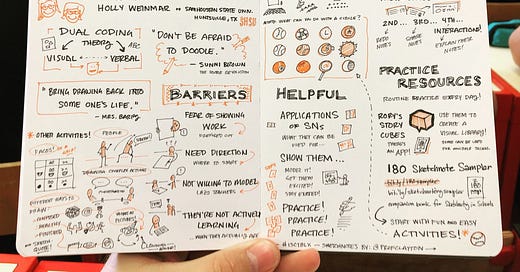 HOLLY WEINMAR
SAM HOUSTON STATE UNIV.
HUNTSVILLE, TX
SHSU
DUAL CODING
THEORY
ABC
VISUAL
VERBAL
"DON'T BE AFRAID
TO DOODLE."
- SUNNI BROWN
THE DOODLE REVOLUTION
"BRING DRAWING BACK INTO
SOME ONE'S LIFE."
- MRS. BARIA
* OTHER ACTIVITIES!
PEOPLE
FACES!
DRAWING COMPLEX ACTIONS
DIFFERENT WAYS TO
DRAW...
BARRIERS
FEAR OF SHOWING
WORK
NEED DIRECTION
WHERE TO START
NOT WILLING TO MODEL
LAZY TEACHERS
THEY'RE NOT ACTIVELY
LEARNING
WHEN THEY ACTUALLY ARE
WHAT CAN YOU DO WITH A CIRCLE?
HELPFUL
APPLICATIONS
OF SNs
WHAT THEY CAN BE
USED FOR...
SHOW THEM...
MODEL IT!
GET THEM
EXCITED!
PRACTICE!
PRACTICE!
PRACTICE!
2ND...
3RD...
4TH...
REDO
NOTES
SHARE
NOTES
INTERACTION!
EXPLAIN THEIR
NOTES!
PRACTICE
RESOURCES
ROUTINE PRACTICE EVERY DAY!
RORY'S
STORY
CUBES
THERE'S
AN APP!
USE THEM TO
CREATE A
VISUAL LIBRARY!
SOME CAN BE USED
FOR MULTIPLE SNs.
180 Sketchnote Sampler
bit.ly/sketchnotingsampler
companion guide for Sketchnoting in Schools
START WITH FUN AND EASY
ACTIVITIES! *
SKETCHNOTES BY: @PROFCLAYTON